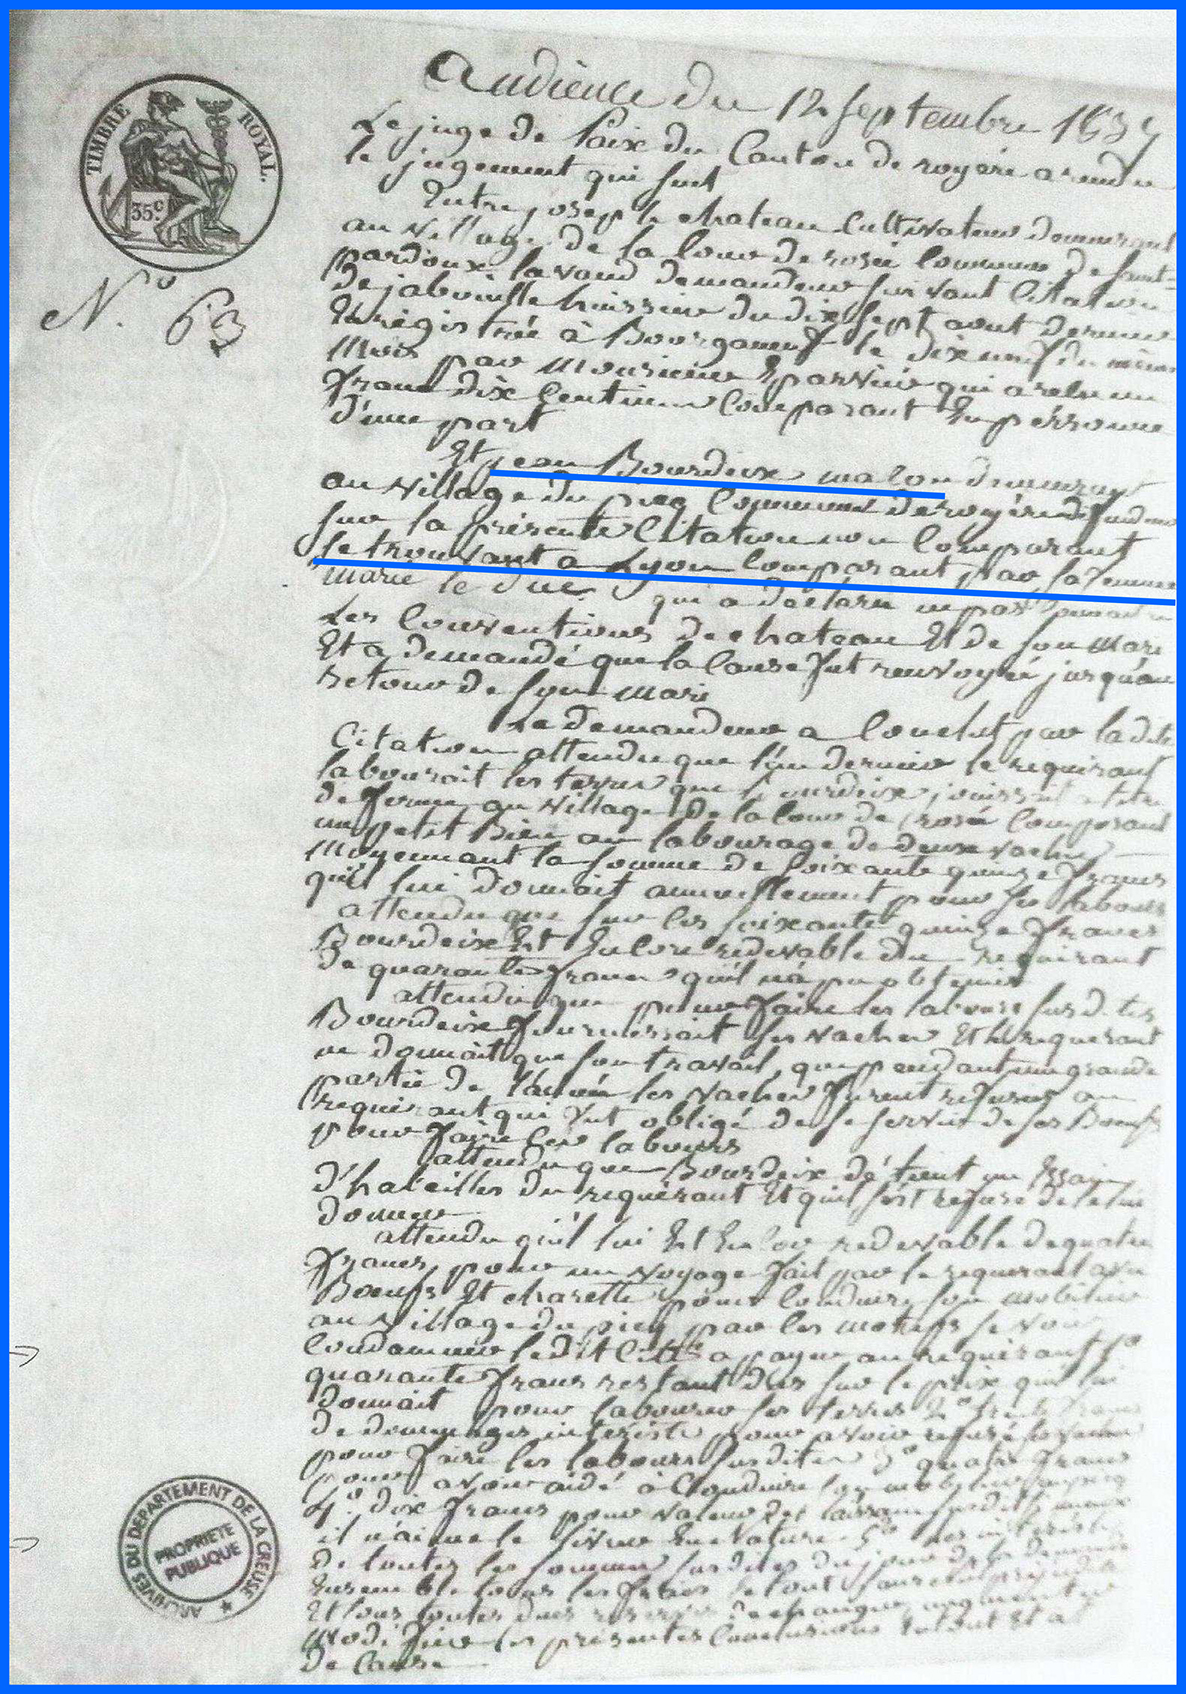 TIMBRE ROYAL.
35c
N.o 63
Audience du 12 septembre 183
Le juge de Paix du Canton de royère a rendu
le jugement qui suit
Entre josep le chateau Cultivateur demeurant
au village de la Commune de saint
pardoux lavaud demandeur suivant Citation
de huissier du dix sept aout dernier
Enregistrée à Bourganeuf le dix neuf du même
Mois par Monsieur qui a reçu un
franc dix Centimes Comparant En personne
d'une part
Et jean Bourdeix malon demeurant
au village du pieq Commune de royère défendeur
sur la présente Citation non Comparant
se trouvant a Lyon Comparant par sa femme
marie le duc qui a déclaré
Les Conventions de chateau Et de son Mari
Et a demandé que la Cause fut renvoyée jusqu'au
Retour de son mari
Le demandeur a Conclut par la dite
Citation attendu que l'an dernier le requérant
labourait les terres que Bourdeix jouissait a titre
de ferme au village de la Composant
un petit Bien au labourage de deux vaches
Moyennant la somme de soixante quinze francs
qu'il lui donnait annuellement pour ses labours
attendu que sur les soixante quinze francs
Bourdeix Est Encore redevable du requérant
de quarante francs qu'il n'a pu obtenir
attendu que pour faire les labours sus dits
Bourdeix fournissait ses vaches Et le requérant
ne donnait que son travail, que pendant une grande
partie de l'année les vaches furent refusées au
requérant qui fut obligé de se servir de ses Boeufs
pour faire les labours
attendu que Bourdeix détient un Essaim
d'habeilles du requérant Et qu'il s'est refusé de le lui
donner
attendu qu'il lui Est Encore redevable de quatre
francs pour un voyage fait par le requérant avec
Boeufs Et charette pour Conduire son mobilier
au village du pieq par les motifs se voir
Condamner le dit a payer au requérant 1o
quarante francs restant dus sur le prix qu'il lui
donnait pour labourer ses terres 2o francs
de dommages interêts pour avoir refusé les vaches
pour faire les labours susdites 3o quatre francs
pour avoir aidé à Conduire son mobilier
4o dix francs pour valeur de l'aissaim susdit mieux
il n'aime le livrer En Nature 5o les interêts
de toutes les sommes susdites du jour de la demande
Ensemble tous les frais le tout sans préjudice
Et sous toutes dues reserves de changer augmenter
modifier les présentes Conclusions En tout Etat
de Cause
ARCHIVES DU DEPARTEMENT DE LA CREUSE
PROPRIETE
PUBLIQUE